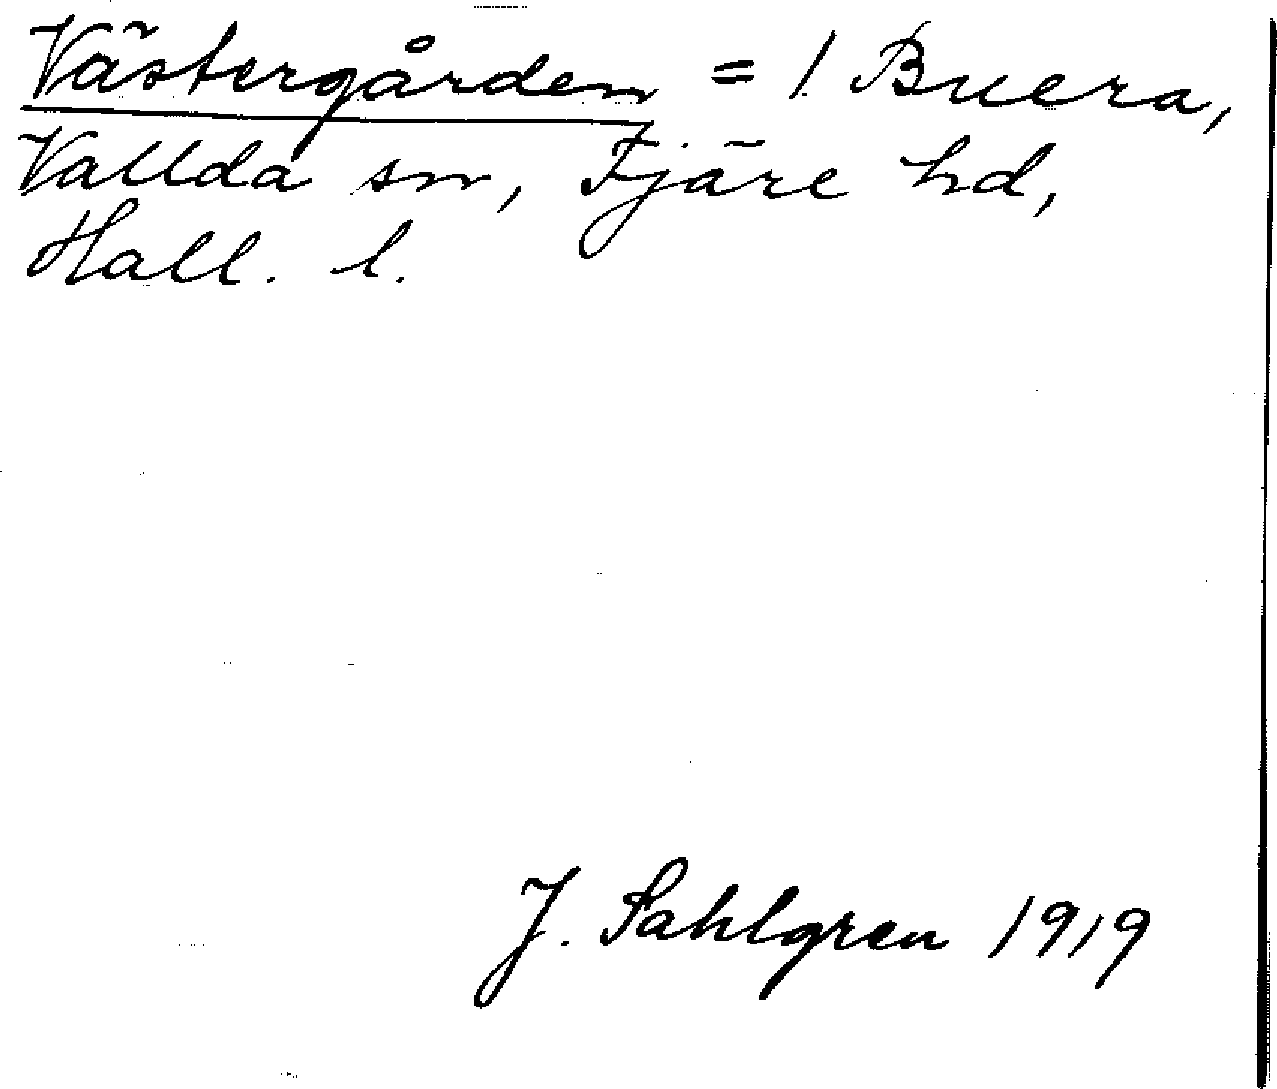 Västergården = 1 Buera,
Vallda sn, Fjäre hd,
Hall. l.
J. Sahlgren 1919